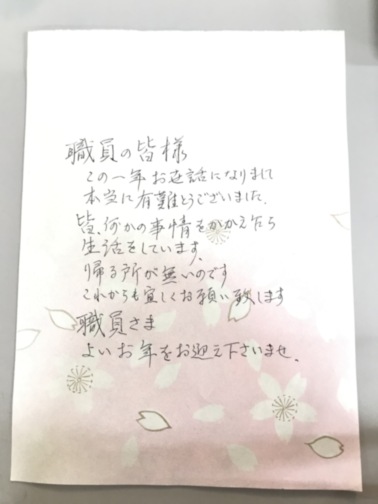 職員の皆様
この一年お世話になりまして
本当に有難とうございました。
皆、何かの事情をかかえ乍ら
生活をしています。
帰る所が無いのです
これからも宜しくお願い致します
職員さま
よいお年をお迎え下さいませ。